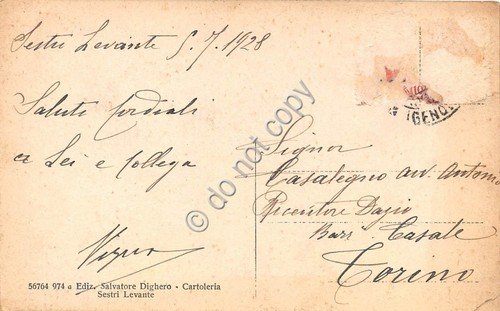 Sestri Levante 5.7.1928
Saluti Cordiali
a Lei e Collega
56764 974 a Ediz. Salvatore Dighero - Cartoleria
Sestri Levante
GENOV
Signor
Casalegno avv. Antoni
Ricevitore Dazio
Barr. Casale
Torino
do not copy